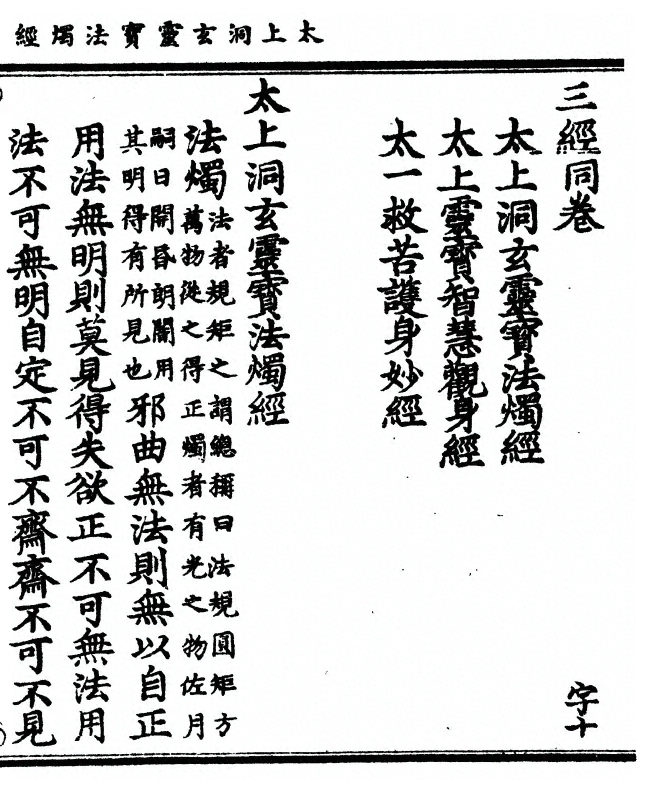 太上洞玄靈寶法燭經
三經同卷 字十
太上洞玄靈寶法燭經
太上靈寶智慧觀身經
太一救苦護身妙經
太上洞玄靈寶法燭經
法燭
法者規矩之謂總稱曰法規圓矩方
萬物從之得正燭者有光之物佐月
嗣日開昏朗闇用
其明得有所見也
邪曲無法則無以自正
用法無明則莫見得失欲正不可無法用
法不可無明自定不可不齋齋不可不見